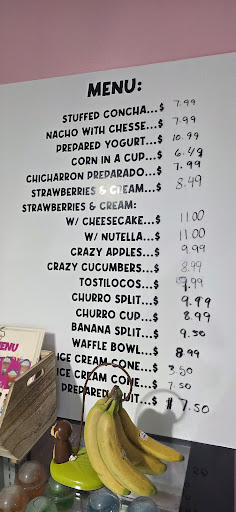 MENU:
STUFFED CONCHA...$ 7.99
NACHO WITH CHESSE...$ 7.99
PREPARED YOGURT...$ 10.99
CORN IN A CUP...$ 6.49
CHICHARRON PREPARADO...$ 7.99
STRAWBERRIES & CREAM...$ 8.49
STRAWBERRIES & CREAM:
W/ CHEESECAKE...$ 11.00
W/ NUTELLA...$ 11.00
CRAZY APPLES...$ 9.99
CRAZY CUCUMBERS...$ 8.99
TOSTILOCOS...$ 9.99
CHURRO SPLIT...$ 9.99
CHURRO CUP...$ 8.99
BANANA SPLIT...$ 9.50
WAFFLE BOWL...$ 8.99
ICE CREAM CONE...$ 3.50
ICE CREAM CONE...$ 7.50
PREPARED $ 7.50
MENU